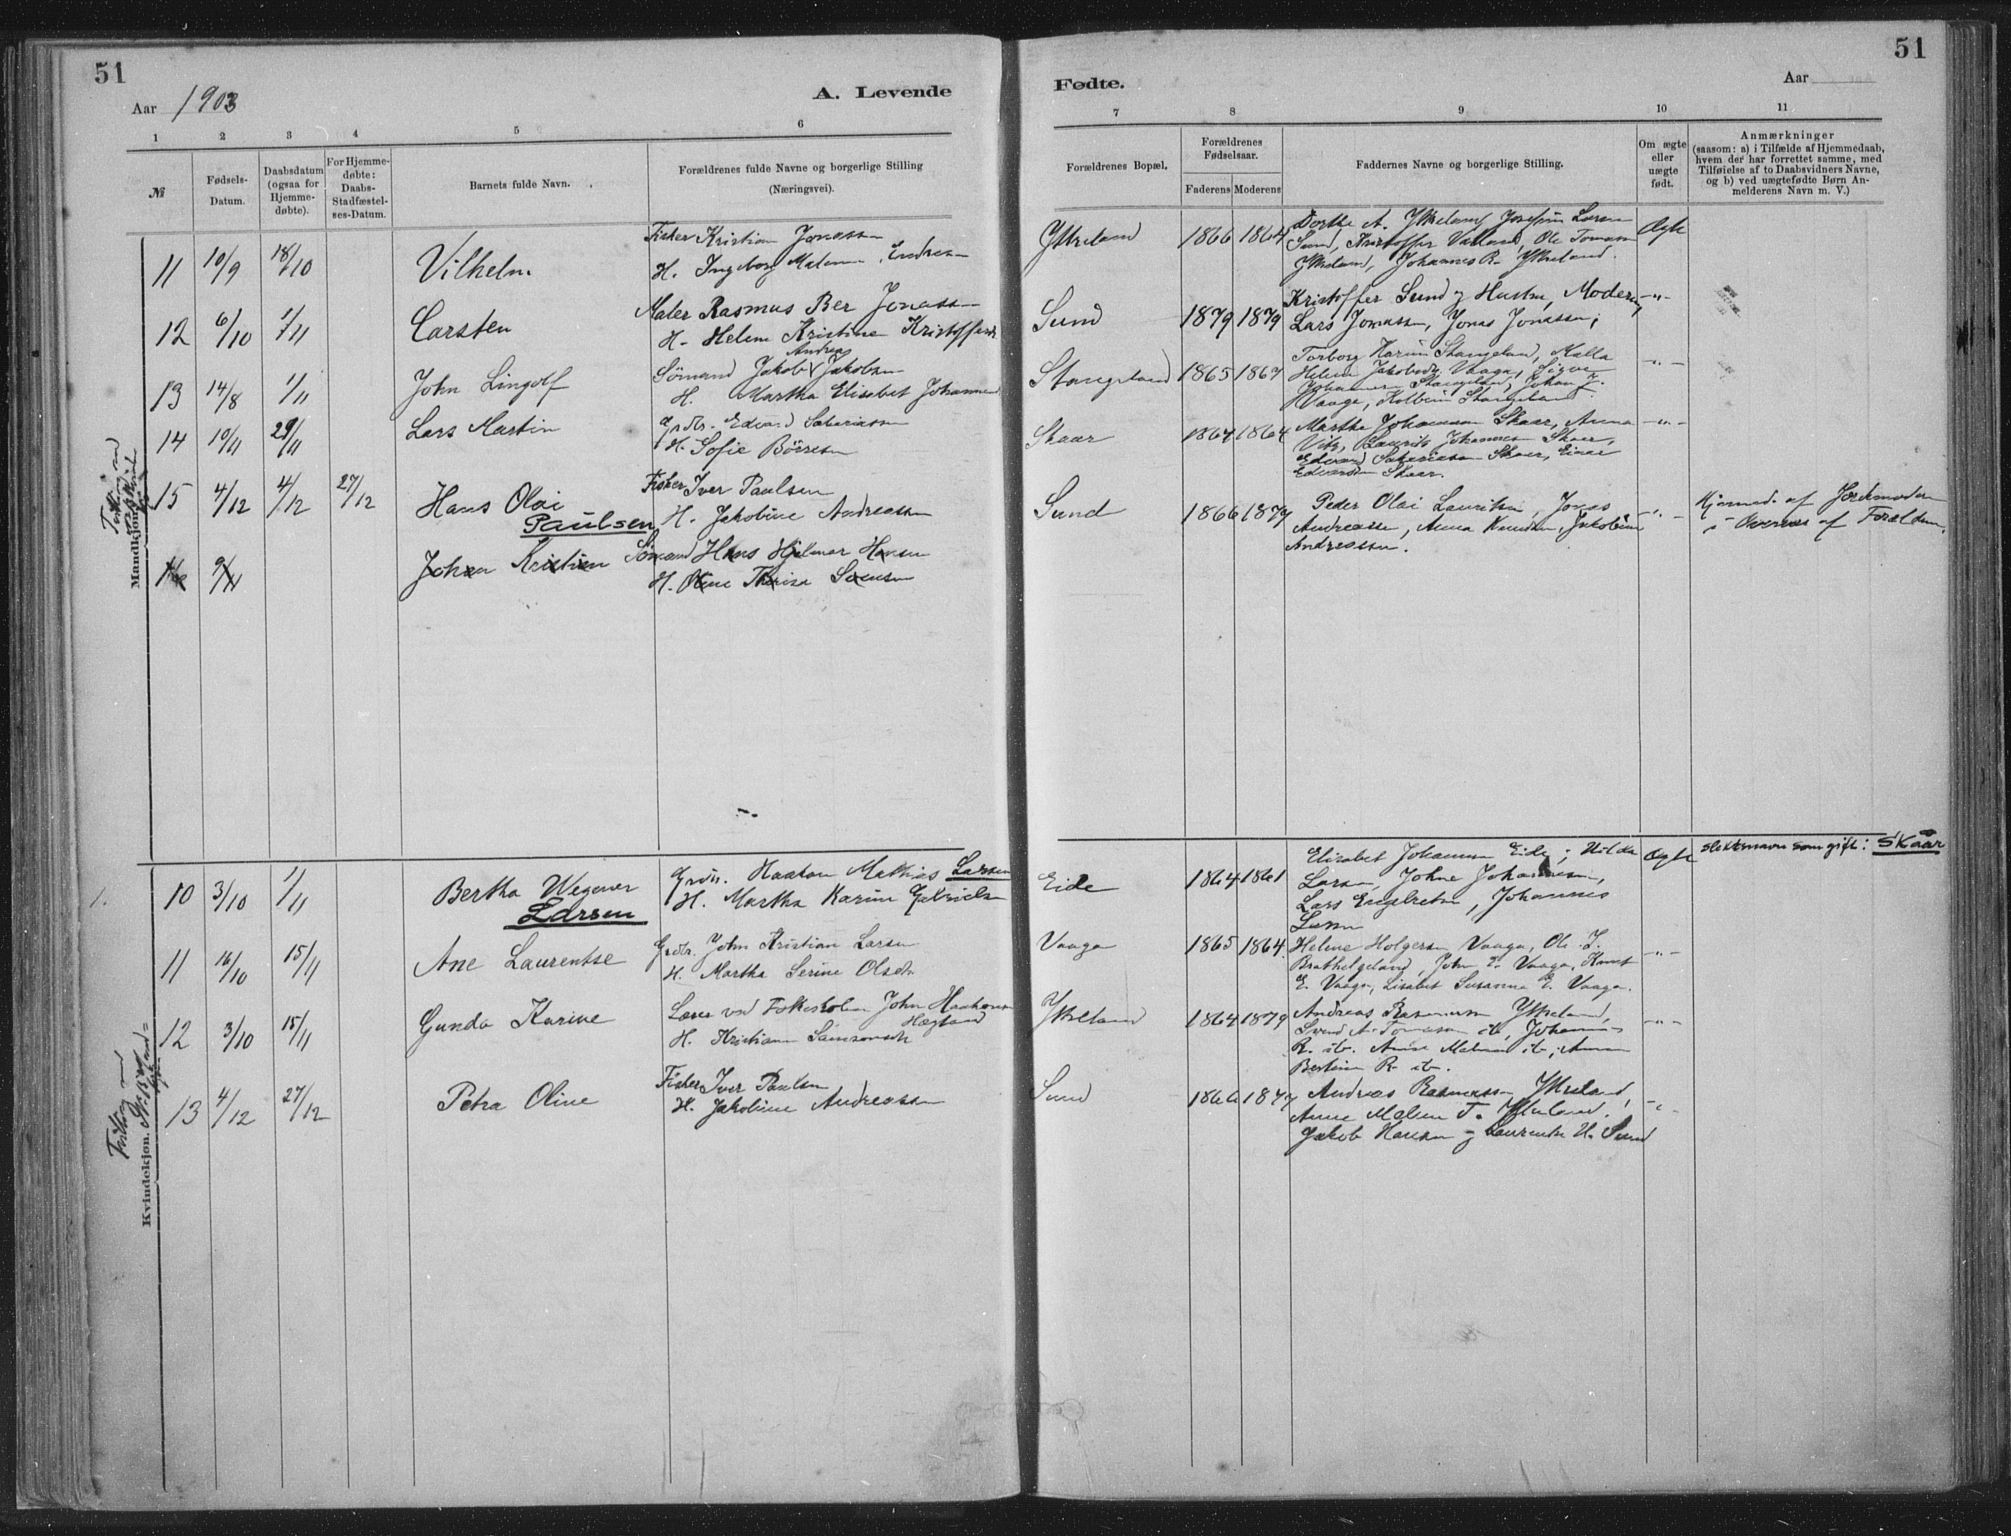 51
Aar 1903
A. Levende
1 2 3 4 5 6
№
Fødsels-
Datum.
Daabsdatum
(ogsaa for
Hjemme-
døbte).
For Hjemme-
døbte:
Daabs-
Stadfæstel-
ses-Datum.
Barnets fulde Navn.
Forældrenes fulde Navne og borgerlige Stilling
(Næringsvei).
Mandkjøn.
11 10/9 18/10 Vilhelm
Fisker Kristian Jonassen
H. Ingeborg Malene
12 6/10 1/11 Carsten
Maler Rasmus Ber Jonassen
H. Helene Kristine
13 14/8 1/11 John Lingolf
Sömand Jakob Andreas Jakobsen
H. Martha Elisabet
14 10/11 29/11 Lars Martin
Grdbr. Edvard
H. Sofie Börresen
15 4/12 4/12 27/12 Hans Olai
Paulsen
Fisker Iver Paulsen
H. Jakobine Andreassen
Johan Kristian
Sömand Hans Hjalmar Hansen
H. Oline
Kvindekjøn.
10 3/10 1/11 Bertha Wegener
Larsen
Haakon Mathias Larsen
H. Martha Karine
11 16/10 15/11 Ane Laurentse
Grdbr. John Kristian Larsen
H. Martha Serine
12 3/10 15/11 Gunda Karine
Lærer ved Folkeskolen John
H. Kristiane
13 4/12 27/12 Petra Oline
Fisker Iver Paulsen
H. Jakobine Andreassen
51
Fødte.
Aar
7 8 9 10 11
Forældrenes Bopæl.
Forældrenes
Fødselsaar.
Faderens Moderens
Faddernes Navne og borgerlige Stilling.
Om ægte
eller
uægte
født.
Anmærkninger
(saasom: a) i Tilfælde af Hjemmedaab,
hvem der har forrettet samme, med
Tilføielse af to Daabsvidners Navne,
og b) ved uægtefødte Børn An-
melderens Navn m. V.)
Ytreland 1866 1864
Dorthe A. Ytreland, Josefine Larsen
Sund, Kristoffer Valland, Ole Tomassen
Ytreland, Johannes R. Ytreland.
Ægte
Sund 1879 1879
Kristoffer Sund og Hustru, Moderen,
Lars Jonassen, Jonas Jonassen,
-"-
Stangeland 1865 1867
Torborg Karine Stangeland, Malla
Helene Vaage, Sigve
Johannesen Stangeland, Johan J.
Vaage, Stangeland.
-"-
Skaar 1864 1864
Marthe Johannesen Skaar, Anna
Laurits Johannesen Skaar,
Edvard Skaar, Einar
Edvardsen Skaar.
-"-
Sund 1866 1879
Peder Olai Lauritsen, Jonas
Andreassen, Anna Knudsen, Jakobine
Andreassen.
-"-
Hjemmed. af Jordemoderen
Forældrene.
Eide 1864 1861
Elisabet Johannesen Eide; Hilda
Larsen, Johannesen,
Lars Johannes
Ægte
slektsnavn som gift: Skaar
Vaage 1865 1864.
Helene Holgersen Vaage, Ole J.
John E. Vaage, Knut
E. Vaage, Lisabet Susanna E. Vaage.
-"-
Ytreland 1864 1879
Andreas Rasmussen Ytreland,
Svend A. Tomassen ib, Johannes
R. ib. Anne Malene ib, Anna
Bertine R. ib.
-"-
Sund 1866 1879
Andreas Rasmussen Ytreland,
Anne Malene T. Ytreland.
Jakob Hansen og Laurentse H. Sund
-"-